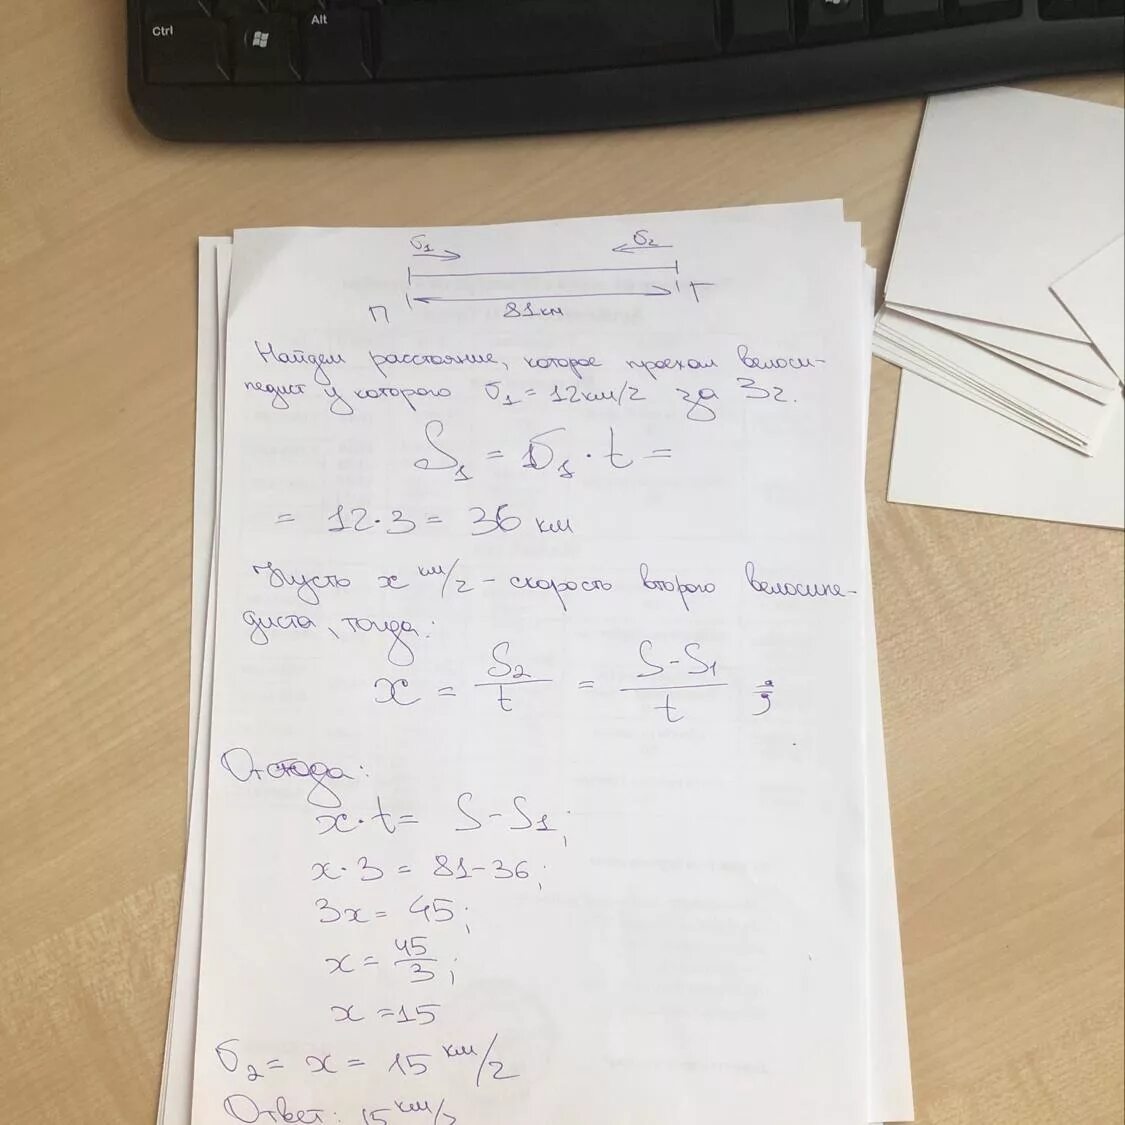 Ctrl
Alt
υ1 υ2
П Г
81км
Найдем расстояние, которое проехал велоси-
педист у которого υ1 = 12км/ч за 3ч.
S1 = υ1 · t =
= 12 · 3 = 36 км
Пусть x км/ч - скорость второго велосипе-
диста, тогда:
x = S2/t = S-S1/t ;
Отсюда:
x · t = S - S1;
x · 3 = 81 - 36;
3x = 45;
x = 45/3;
x = 15
υ2 = x = 15 км/ч
Ответ: 15 км/ч